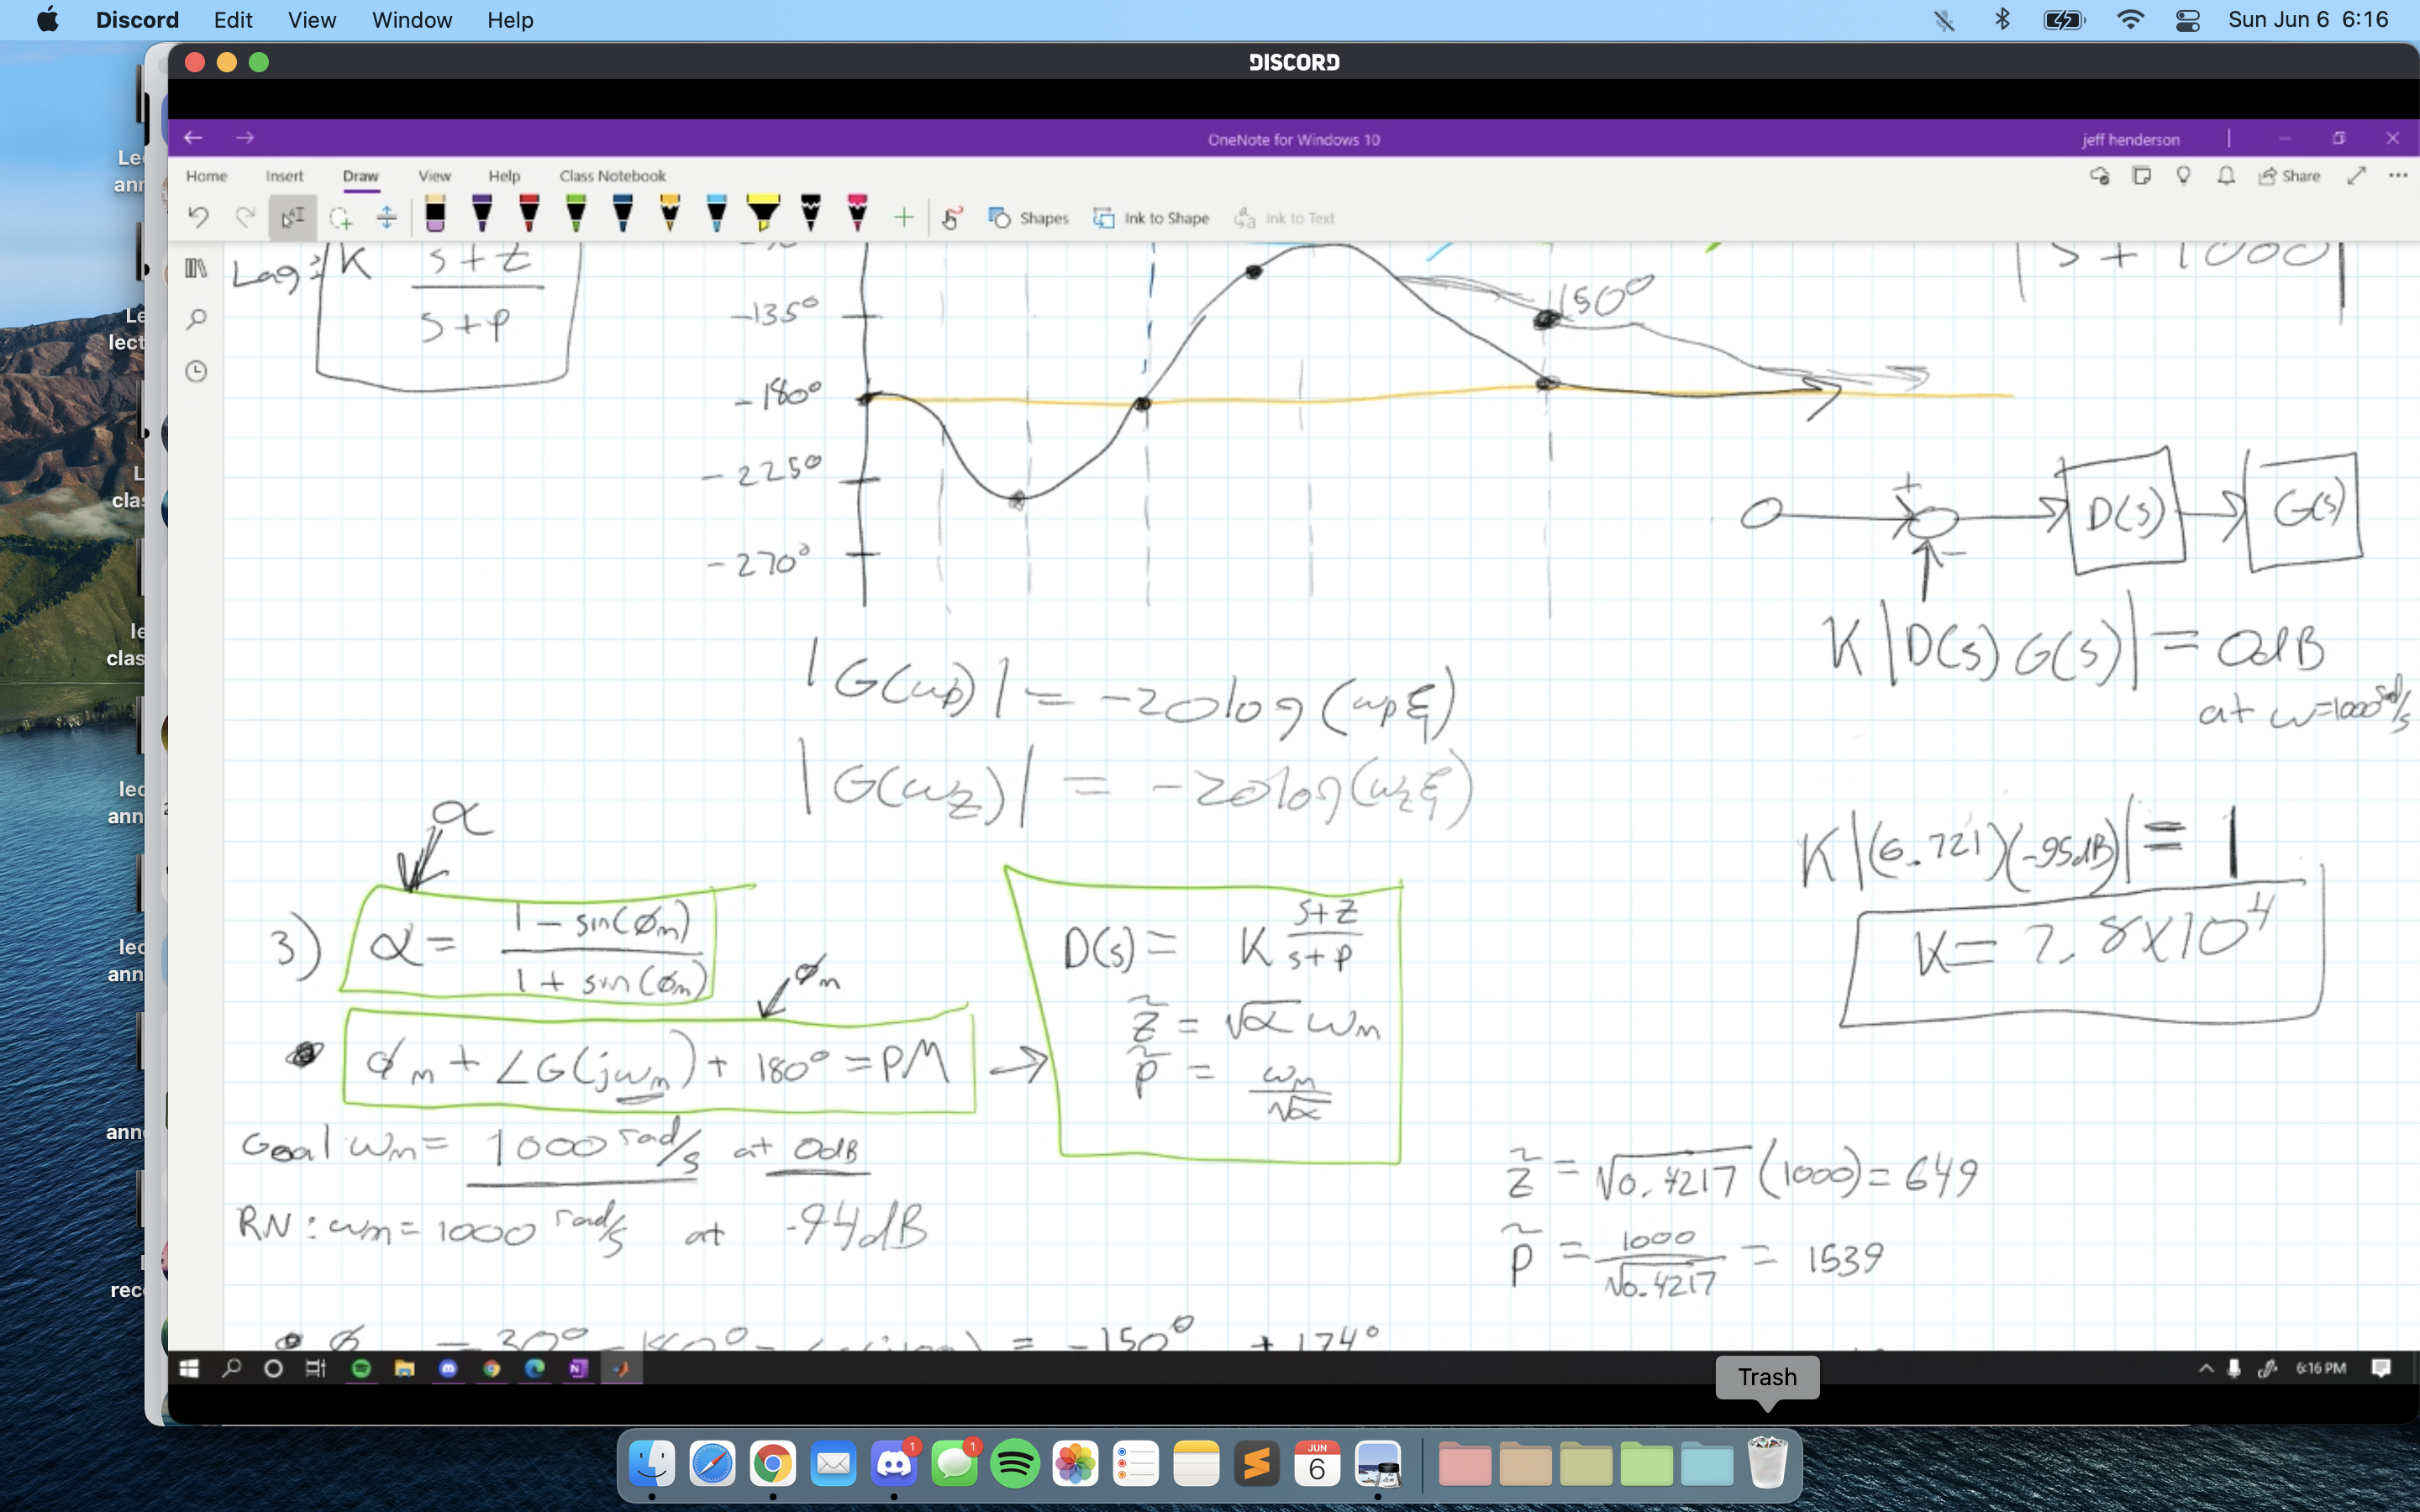 Discord Edit View Window Help Sun Jun 6 6:16
DISCORD
OneNote for Windows 10 jeff henderson
Home Insert Draw View Help Class Notebook Share
Shapes Ink to Shape Ink to Text
Lag: K s+z
s+p
-135°
-180°
-225°
-270°
150°
|s + 1000|
+
-
D(s) G(s)
K|D(s) G(s)| = 0dB
at ω=1000 rad/s
|G(ωp)| = -20log(ωpξ)
|G(ωz)| = -20log(ωzξ)
K|(6.721)(-95dB)| = 1
α
3) α = 1 - sin(φm)
1 + sin(φm)
φm
φm + ∠G(jωm) + 180° = PM
D(s) = K s+z
s+p
z̃ = √α ωm
p̃ = ωm
√α
Goal ωm = 1000 rad/s at 0dB
RN: ωm = 1000 rad/s at -94dB
z̃ = √0.4217 (1000) = 649
p̃ = 1000 = 1539
√0.4217
= -150° + 174°
6:16 PM
Trash
JUN
6
1
1